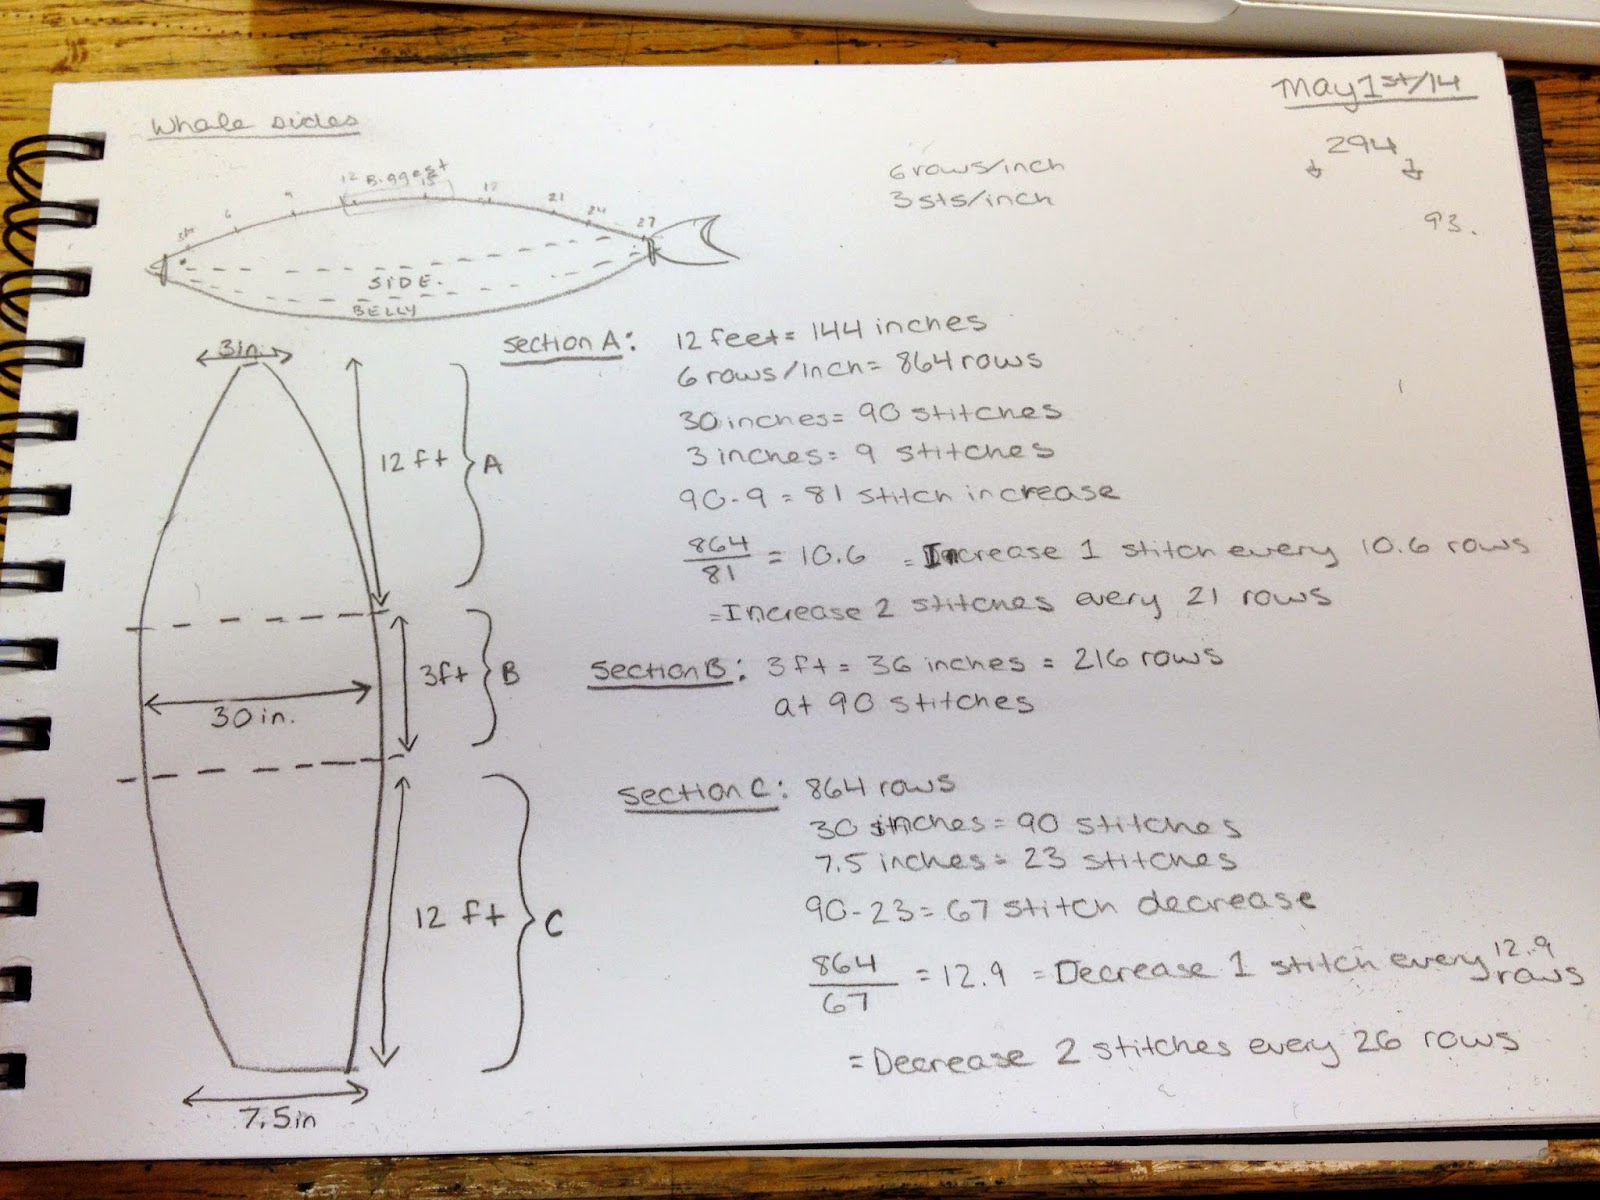 Whale sides
May 1st/14
294
93.
6 rows/inch
3 sts/inch
6
9
12 Biggest 15
18
21
24
27
SIDE.
BELLY
3in.
12 ft
A
3ft
B
30 in.
12 ft
C
7.5in
Section A: 12 feet = 144 inches
6 rows/inch = 864 rows
30 inches = 90 stitches
3 inches = 9 stitches
90-9 = 81 stitch increase
864
81
= 10.6 = Increase 1 stitch every 10.6 rows
= Increase 2 stitches every 21 rows
Section B: 3ft = 36 inches = 216 rows
at 90 stitches
Section C: 864 rows
30 inches = 90 stitches
7.5 inches = 23 stitches
90-23 = 67 stitch decrease
864
67
= 12.9 = Decrease 1 stitch every 12.9 rows
= Decrease 2 stitches every 26 rows